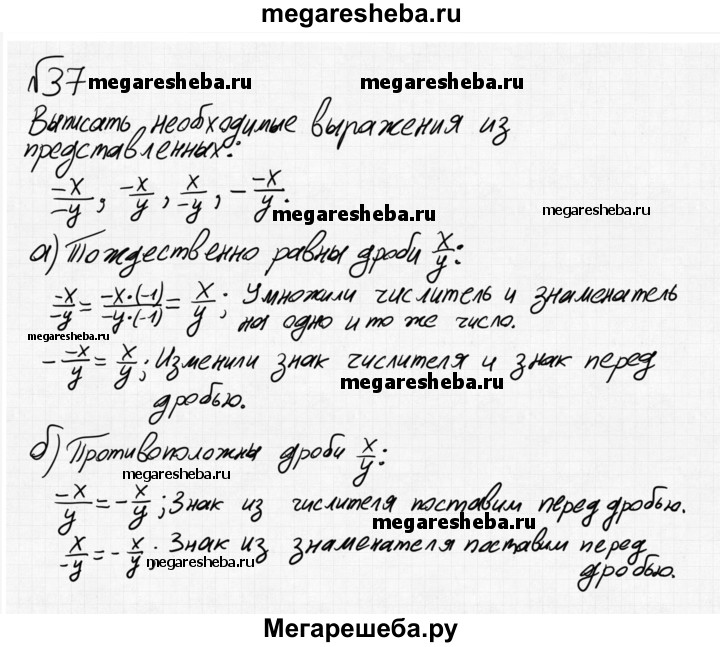 megaresheba.ru
№37 megaresheba.ru megaresheba.ru
Выписать необходимые выражения из
представленных:
-x/-y, -x/y, x/-y, - -x/y.
megaresheba.ru megaresheba.ru
а) Тождественно равны дроби x/y:
-x/-y = -x·(-1)/-y·(-1) = x/y; Умножили числитель и знаменатель
на одно и то же число.
megaresheba.ru
- -x/y = x/y; Изменили знак числителя и знак перед
megaresheba.ru
дробью.
б) Противоположны дроби x/y:
megaresheba.ru
-x/y = -x/y; Знак из числителя поставим перед дробью.
megaresheba.ru
x/-y = -x/y. Знак из знаменателя поставим перед
megaresheba.ru
дробью.
Мегарешеба.ру